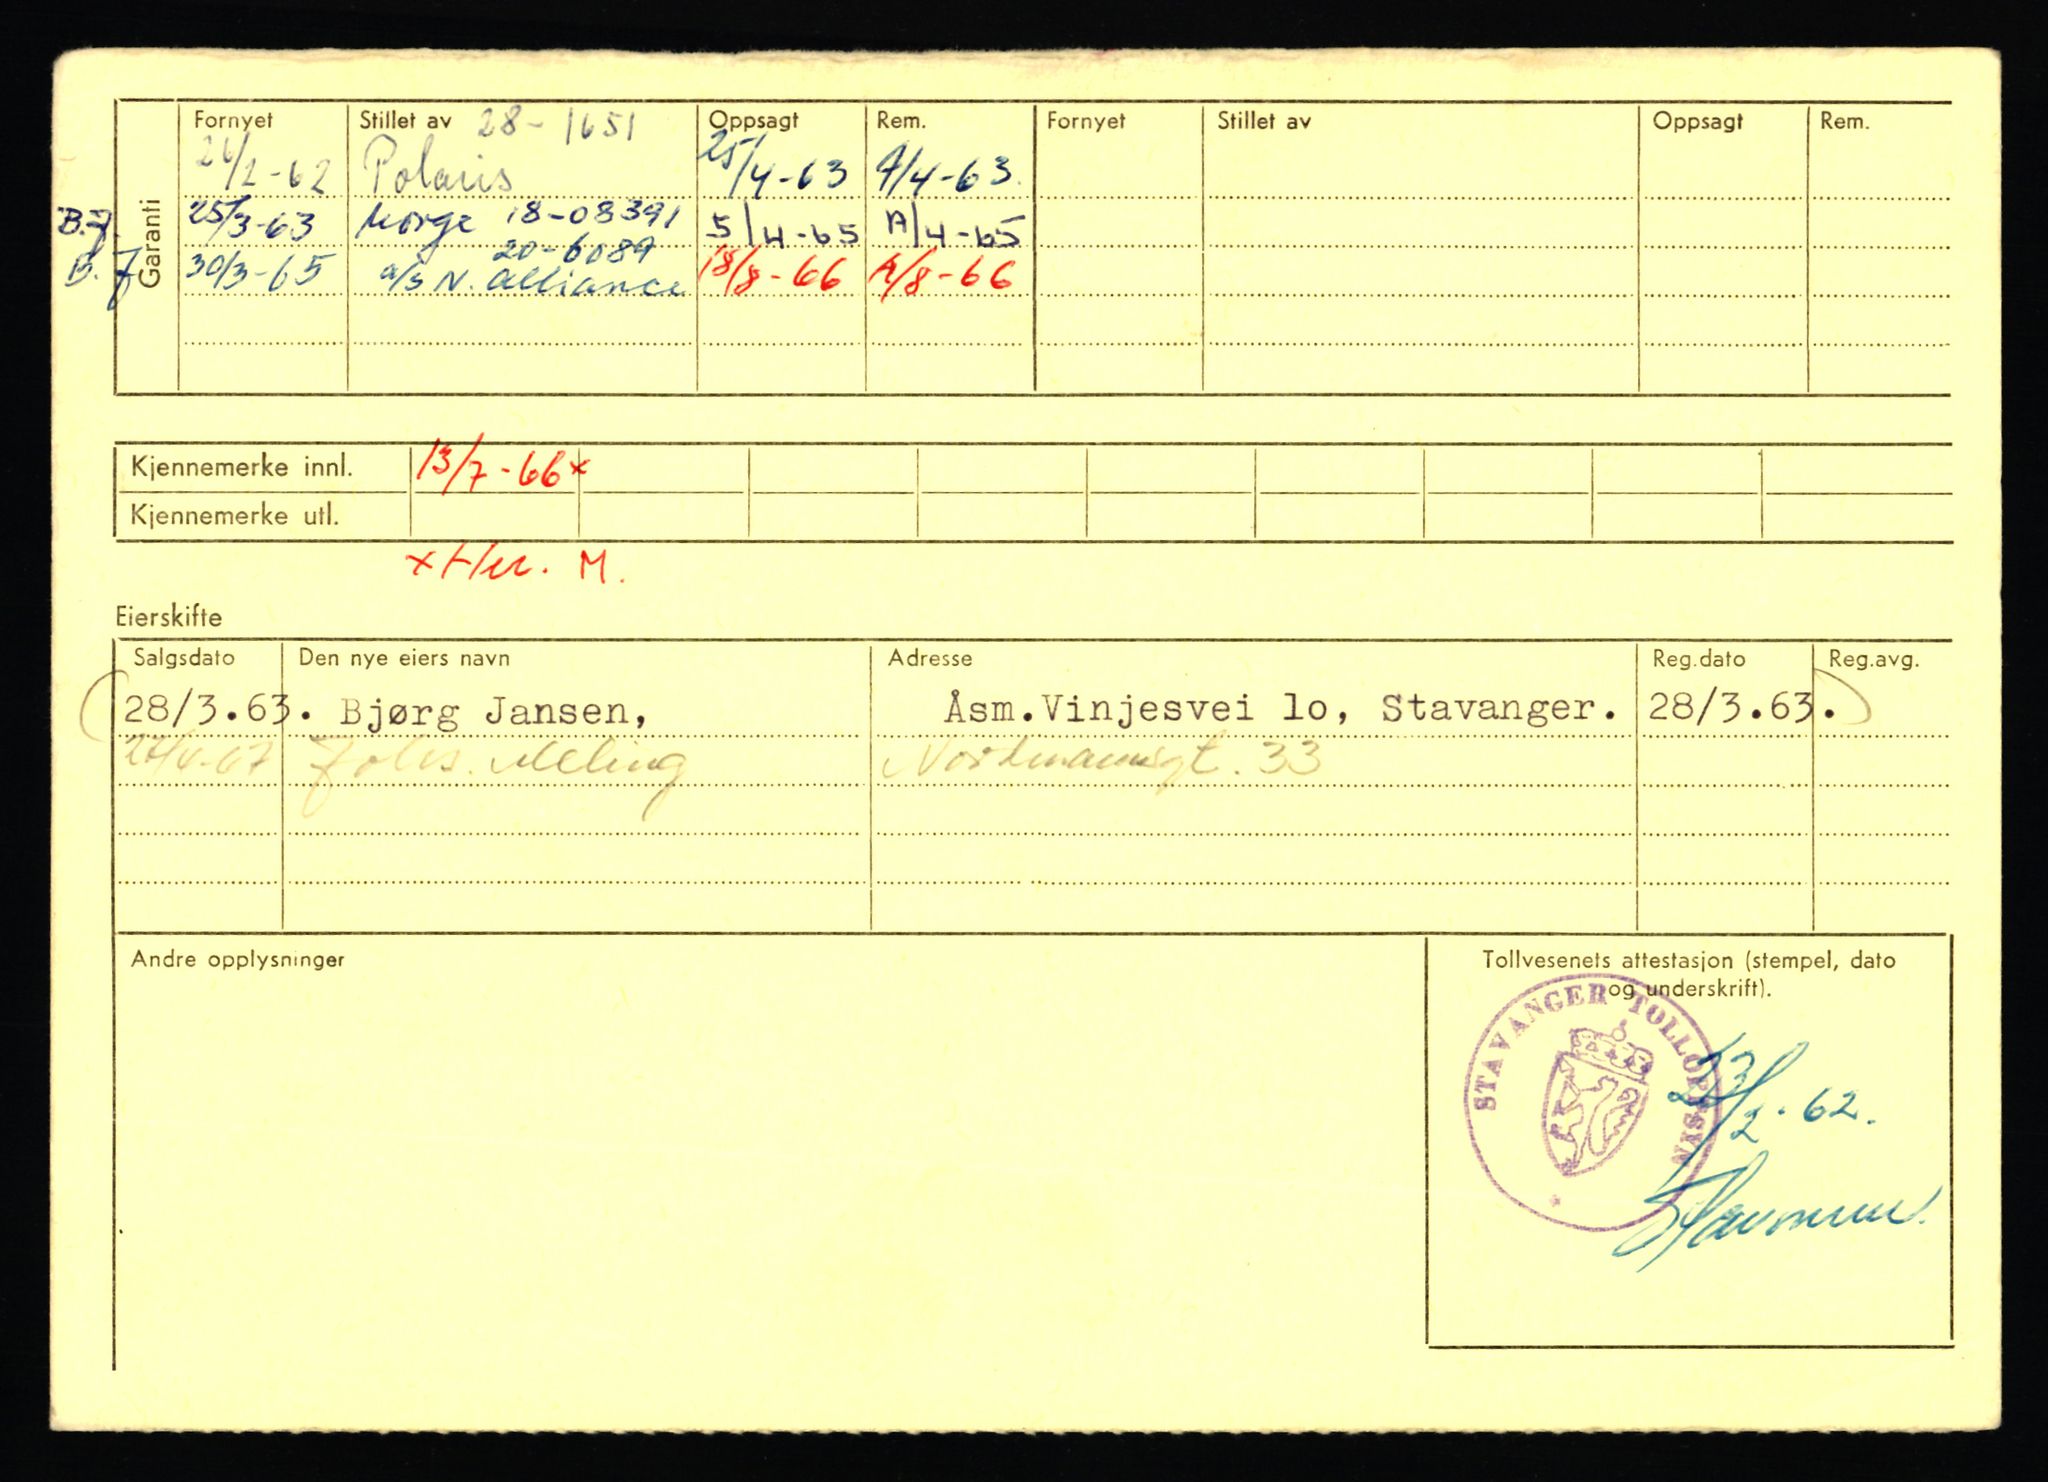 Fornyet Stillet av 28-1651 Oppsagt Rem. Fornyet Stillet av Oppsagt Rem.
Garanti
26/2-62 Polaris 25/4-63 A/4-63.
B.J. 25/3-63 Norge 18-08391 5/4-65 A/4-65
20-6089
B.J 30/3-65 a/s N. Alliance 18/8-66 A/8-66
Kjennemerke innl. 13/7-66x
Kjennemerke utl.
M.
Eierskifte
Salgsdato Den nye eiers navn Adresse Reg.dato Reg.avg.
(28/3.63. Bjørg Jansen, Åsm.Vinjesvei lo, Stavanger. 28/3.63.)
Johs. Meling Nordmannsgt. 33
Andre opplysninger
Tollvesenets attestasjon (stempel, dato
og underskrift).
STAVANGER TOLLOPPSYN
23/2-62.